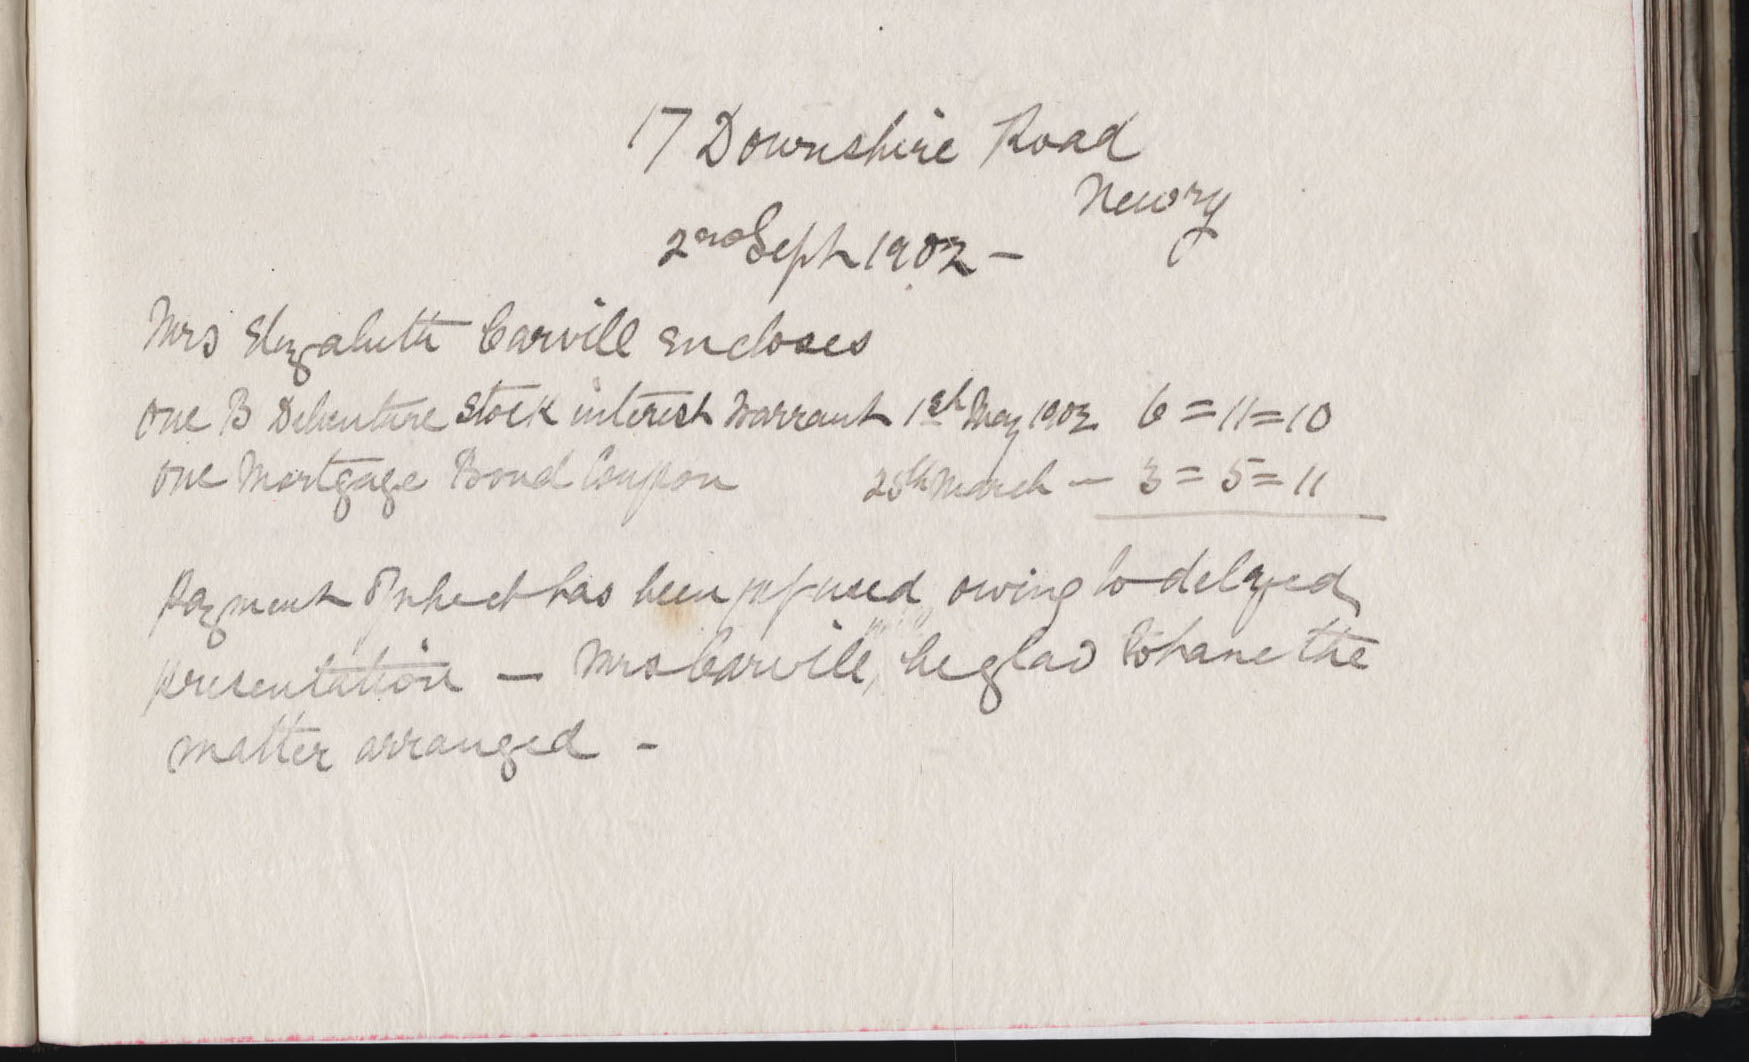 17 Downshire Road
Newry
2nd Sept 1902 -
Mrs Elizabeth Carvill encloses
One B Debenture Stock interest Warrant 1st May 1902 6 = 11 = 10
One Mortgage Bond Coupon 25th March - 3 = 5 = 11
Payment of which has been refused, owing to delayed
presentation - Mrs Carvill, be glad to have the
matter arranged -